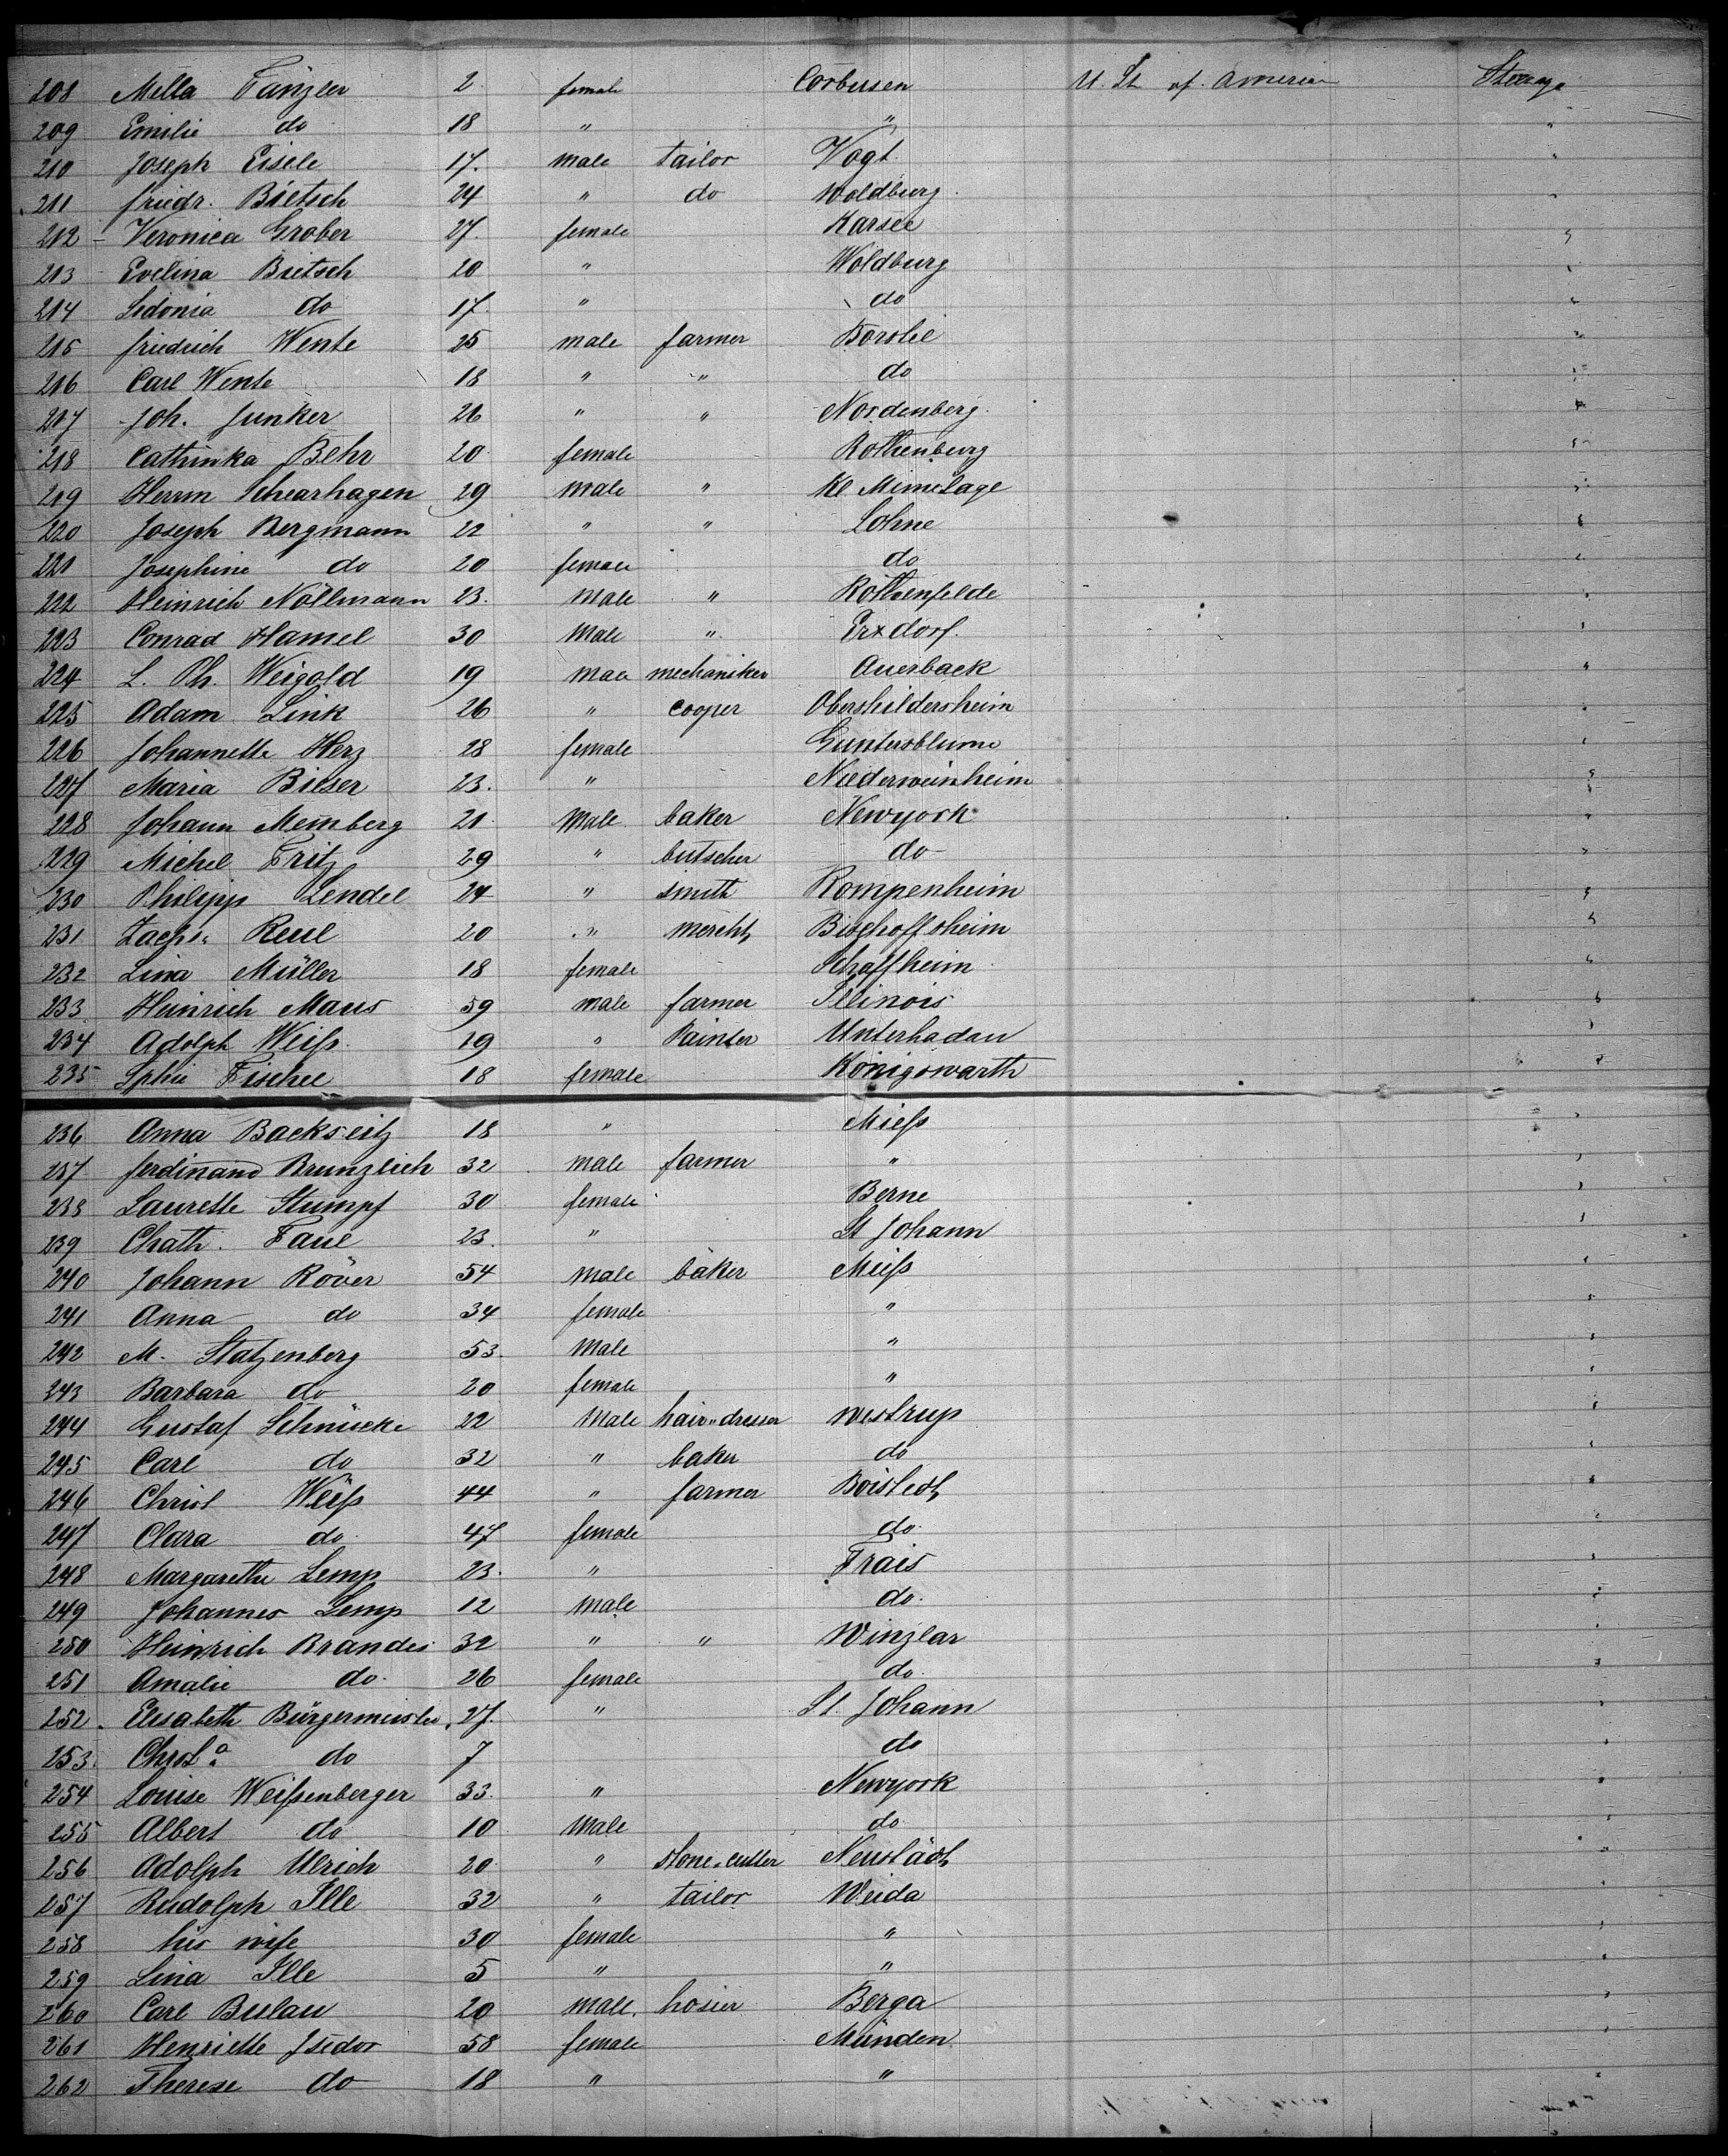 208 Mella Tänzler 2 female Corbersen U. St. of America Steerage
209 Emilie do 18 " " "
210 Joseph Eisele 17. male tailor Vogt "
211 friedr. Bietsch 24 " do Woldburg "
212 Veronica Grober 27. female Karsee "
213 Evelina Bietsch 20 " Woldburg "
214 Sidonia do 17. " do "
215 friedrich Wente 25 male farmer Borstel "
216 Carl Wente 18 " " do "
217 Joh. Junker 26 " " Nordenberg "
218 Cathinka Behr 20 female Rothenburg "
219 Herrm Schearhagen 29 male " Kl Mimelage "
220 Joseph Bergmann 22 " " Lohne "
221 Josephine do 20 female do "
222 Heinrich Nöllmann 23. male " Rothenfelde "
223 Conrad Hamel 30 male " Erxdorf. "
224 L. Ph. Weigold 19 male mechaniker Auerback "
225 Adam Link 26 " cooper Obershildersheim "
226 Johannette Herz 28 female Guntersblume "
227 Maria Bieser 23. " Niederweinheim "
228 Johann Meinberg 21 Male baker Newyork "
229 Michel Fritz 29 " butscher do "
230 Philipp Lendel 24 " smith Rompenheim "
231 Zachs. Reul 20 " mercht Bischoffsheim "
232 Lina Müller 18 female Schaffheim "
233 Heinrich Maus 59 male farmer Illinois "
234 Adolph Weiß 19 " Painter Unterhadau "
235 Sphie Fischel 18 female Königswarth "
236 Anna Backseitz 18 " Mieß "
237 ferdinand Brunzlich 32 male farmer " "
238 Laurette Stumpf 30 female Berne "
239 Chath. Faul 23. " St Johann "
240 Johann Röver 54 male bäker Mieß "
241 Anna do 34 female " "
242 M. Statzenberg 53. Male " "
243 Barbara do 20 female " "
244 Gustaf Schnücke 22 Male hair-dresser westrup "
245 Carl do 32 " baker do "
246 Christ Weiß 44 " farmer Boistedt "
247 Clara do 47 female do "
248 Margarethe Lemp 23. " Trais "
249 Johannes Lemp 12 male do. "
250 Heinrich Brandes 32 " " Winzlar "
251 Amalie do 26 female do. "
252. Elisabeth Bürgermeister 27. " St. Johann "
253. Christ.a do 7 do "
254 Louise Weißenberger 33. " Newyork "
255 Albert do 10 Male do "
256 Adolph Ulrich 20 " stone-cutter Neustadt "
257 Rudolph Ille 32 " tailor Weida "
258 his wife 30 female " "
259 Lina Ille 5 " " "
260 Carl Bulau 20 male. hosier Berga "
261 Henriette Isedor 58 female Münden "
262 Therese do 18 " " "